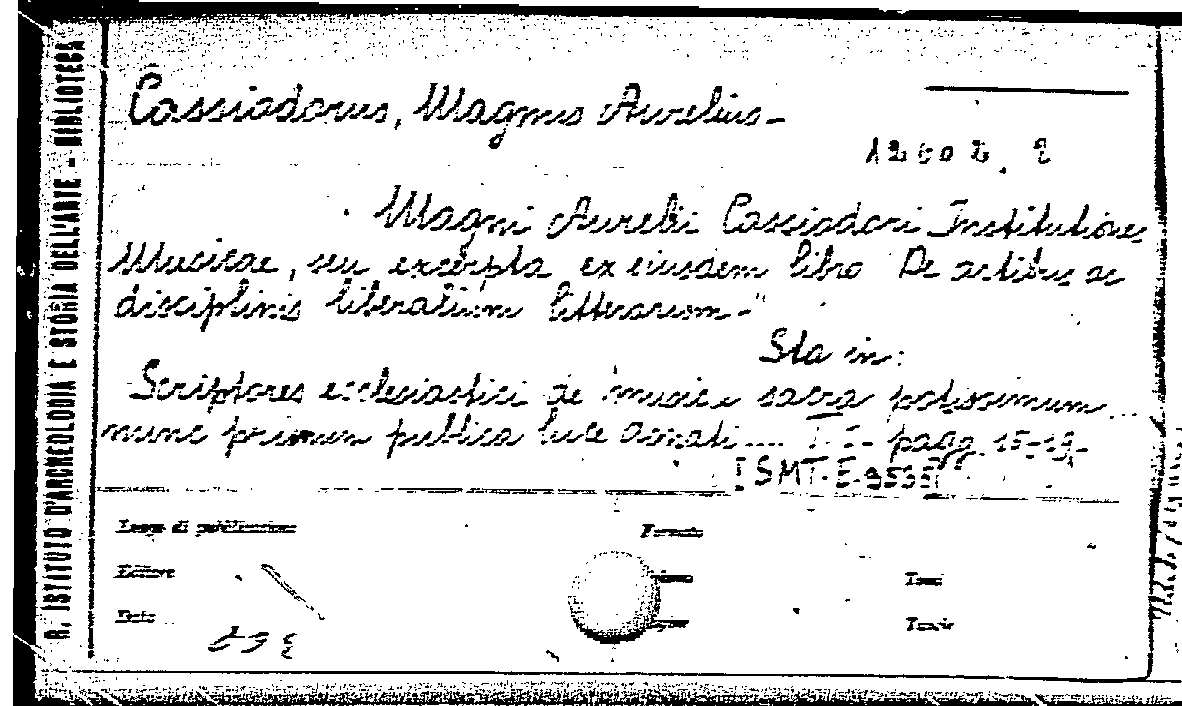 R. ISTITUTO D'ARCHEOLOGIA E STORIA DELL'ARTE - BIBLIOTECA
Cassiodorus, Magnus Aurelius-
Magni Aureli Cassiodori Institutiones
Musicae, seu excerpta ex eiusdem libro "De artibus ac
disciplinis liberalium litterarum-"
Sta in:
Scriptores ecclesiastici de musica sacra potissimum...
nunc primum publica luce donati.... T. I- pagg. 15-19-
Luogo di pubblicazione
Formato
Editore
Tomi
Data